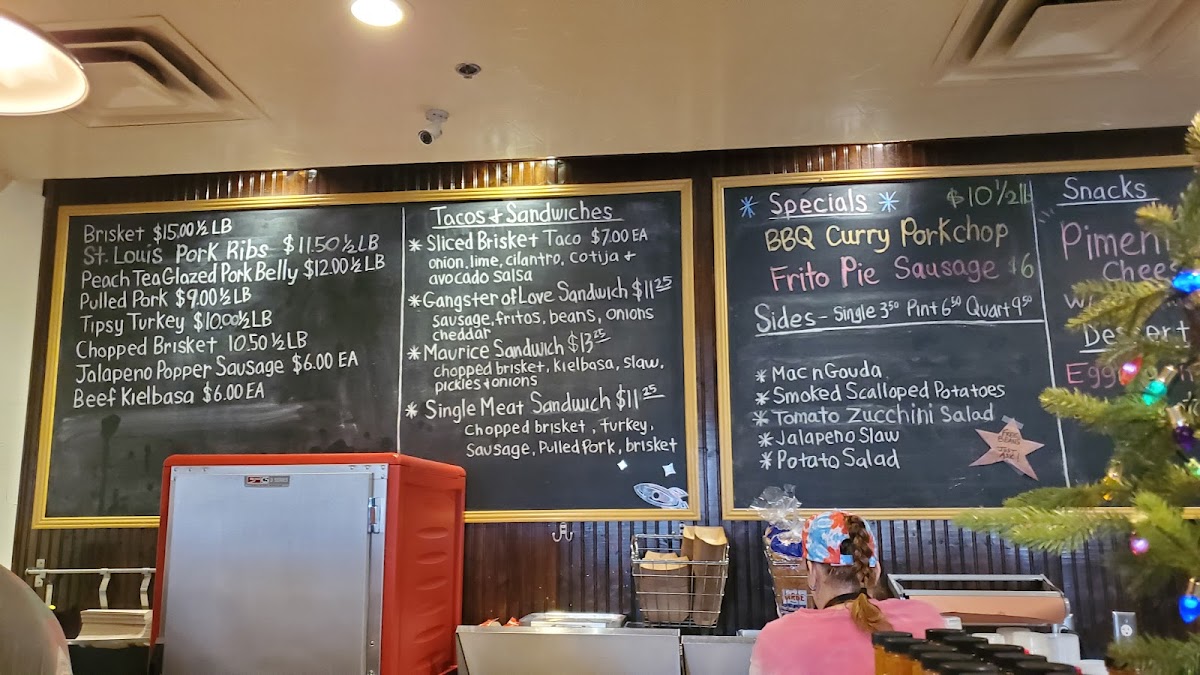 Brisket $15.00 ½ LB
St. Louis Pork Ribs $11.50 ½ LB
Peach Tea Glazed Pork Belly $12.00 ½ LB
Pulled Pork $9.00 ½ LB
Tipsy Turkey $10.00 ½ LB
Chopped Brisket 10.50 ½ LB
Jalapeno Popper Sausage $6.00 EA
Beef Kielbasa $6.00 EA
Tacos + Sandwiches
* Sliced Brisket Taco $7.00 EA
onion, lime, cilantro, cotija +
avocado salsa
* Gangster of Love Sandwich $11 25
sausage, fritos, beans, onions
cheddar
* Maurice Sandwich $13 25
chopped brisket, kielbasa, slaw,
pickles + onions
* Single Meat Sandwich $11 25
Chopped brisket, Turkey,
Sausage, Pulled Pork, brisket
* Specials *
$10 ½ lb
BBQ Curry Porkchop
Frito Pie Sausage $6
Sides - Single 3 50 Pint 6 50 Quart 9 50
* Mac n Gouda
* Smoked Scalloped Potatoes
* Tomato Zucchini Salad
* Jalapeno Slaw
* Potato Salad
FREE
BEANS
JUST
ASK!
Snacks
Dessert